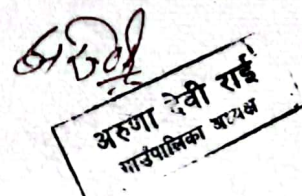 अरुणा देवी राई
गाउँपालिका अध्यक्ष